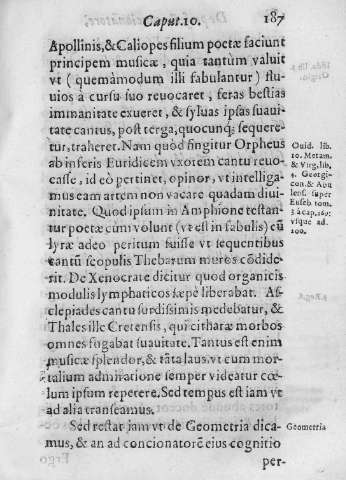 Caput. 10. 187
Apollinis, & Caliopes filium poetæ faciunt
principem musicæ, quia tantùm valuit
vt (quemàmodum illi fabulantur) flu-
uios à cursu suo reuocaret, feras bestias
immanitate exueret, & syluas ipsas suaui-
tate cantus, post terga, quocunq; sequere-
tur, traheret. Nam quòd fingitur Orpheus
ab inferis Euridicem vxorem cantu reuo-
casse, id eò pertinet, opinor, vt intelliga-
mus eam artem non vacare quadam diui-
nitate. Quod ipsum in Amphione testan-
tur poetæ cùm volunt (vt est in fabulis) cū
lyræ adeo peritum fuisse vt sequentibus
cantū scopulis Thebarum muros cōdide-
rit. De Xenocrate dicitur quod organicis
modulis lymphaticos sæpè liberabat. As-
clepiades cantu surdissimis medebatur, &
Thales ille Cretensis, qui citharæ morbos
omnes fugabat suauitate. Tantus est enim
musicæ splendor, & tāta laus, vt cum mor-
talium admiratione semper videatur cœ-
lum ipsum repetere. Sed tempus est iam vt
ad alia transeamus.
Sed restat jam vt de Geometria dica-
mus, & an ad concionatorē eius cognitio
per-
Ouid. lib.
10. Metam.
& Virg. lib.
4. Georgi-
con. & Abu
lens. super
Euseb. tom.
3. à cap. 169.
vsque ad
200.
Geometria